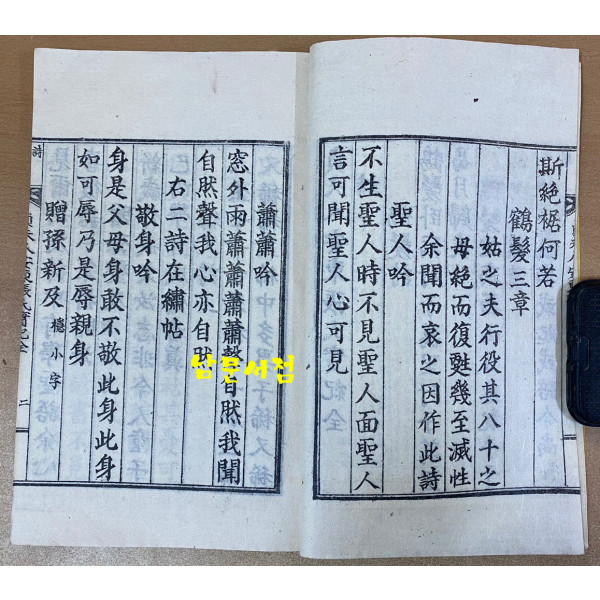 斯絶裾何若
鶴髮三章
姑之夫行役其八十之
母絶而復甦幾至滅性
余聞而哀之因作此詩
聖人吟
不生聖人時不見聖人面聖人
言可聞聖人心可見
蕭蕭吟
窓外雨蕭蕭蕭蕭聲自然我聞
自然聲我心亦自然
右二詩在繡帖
敬身吟
身是父母身敢不敬此身此身
如可辱乃是辱親身
贈孫新及 穩小字
詩
二
남문서점